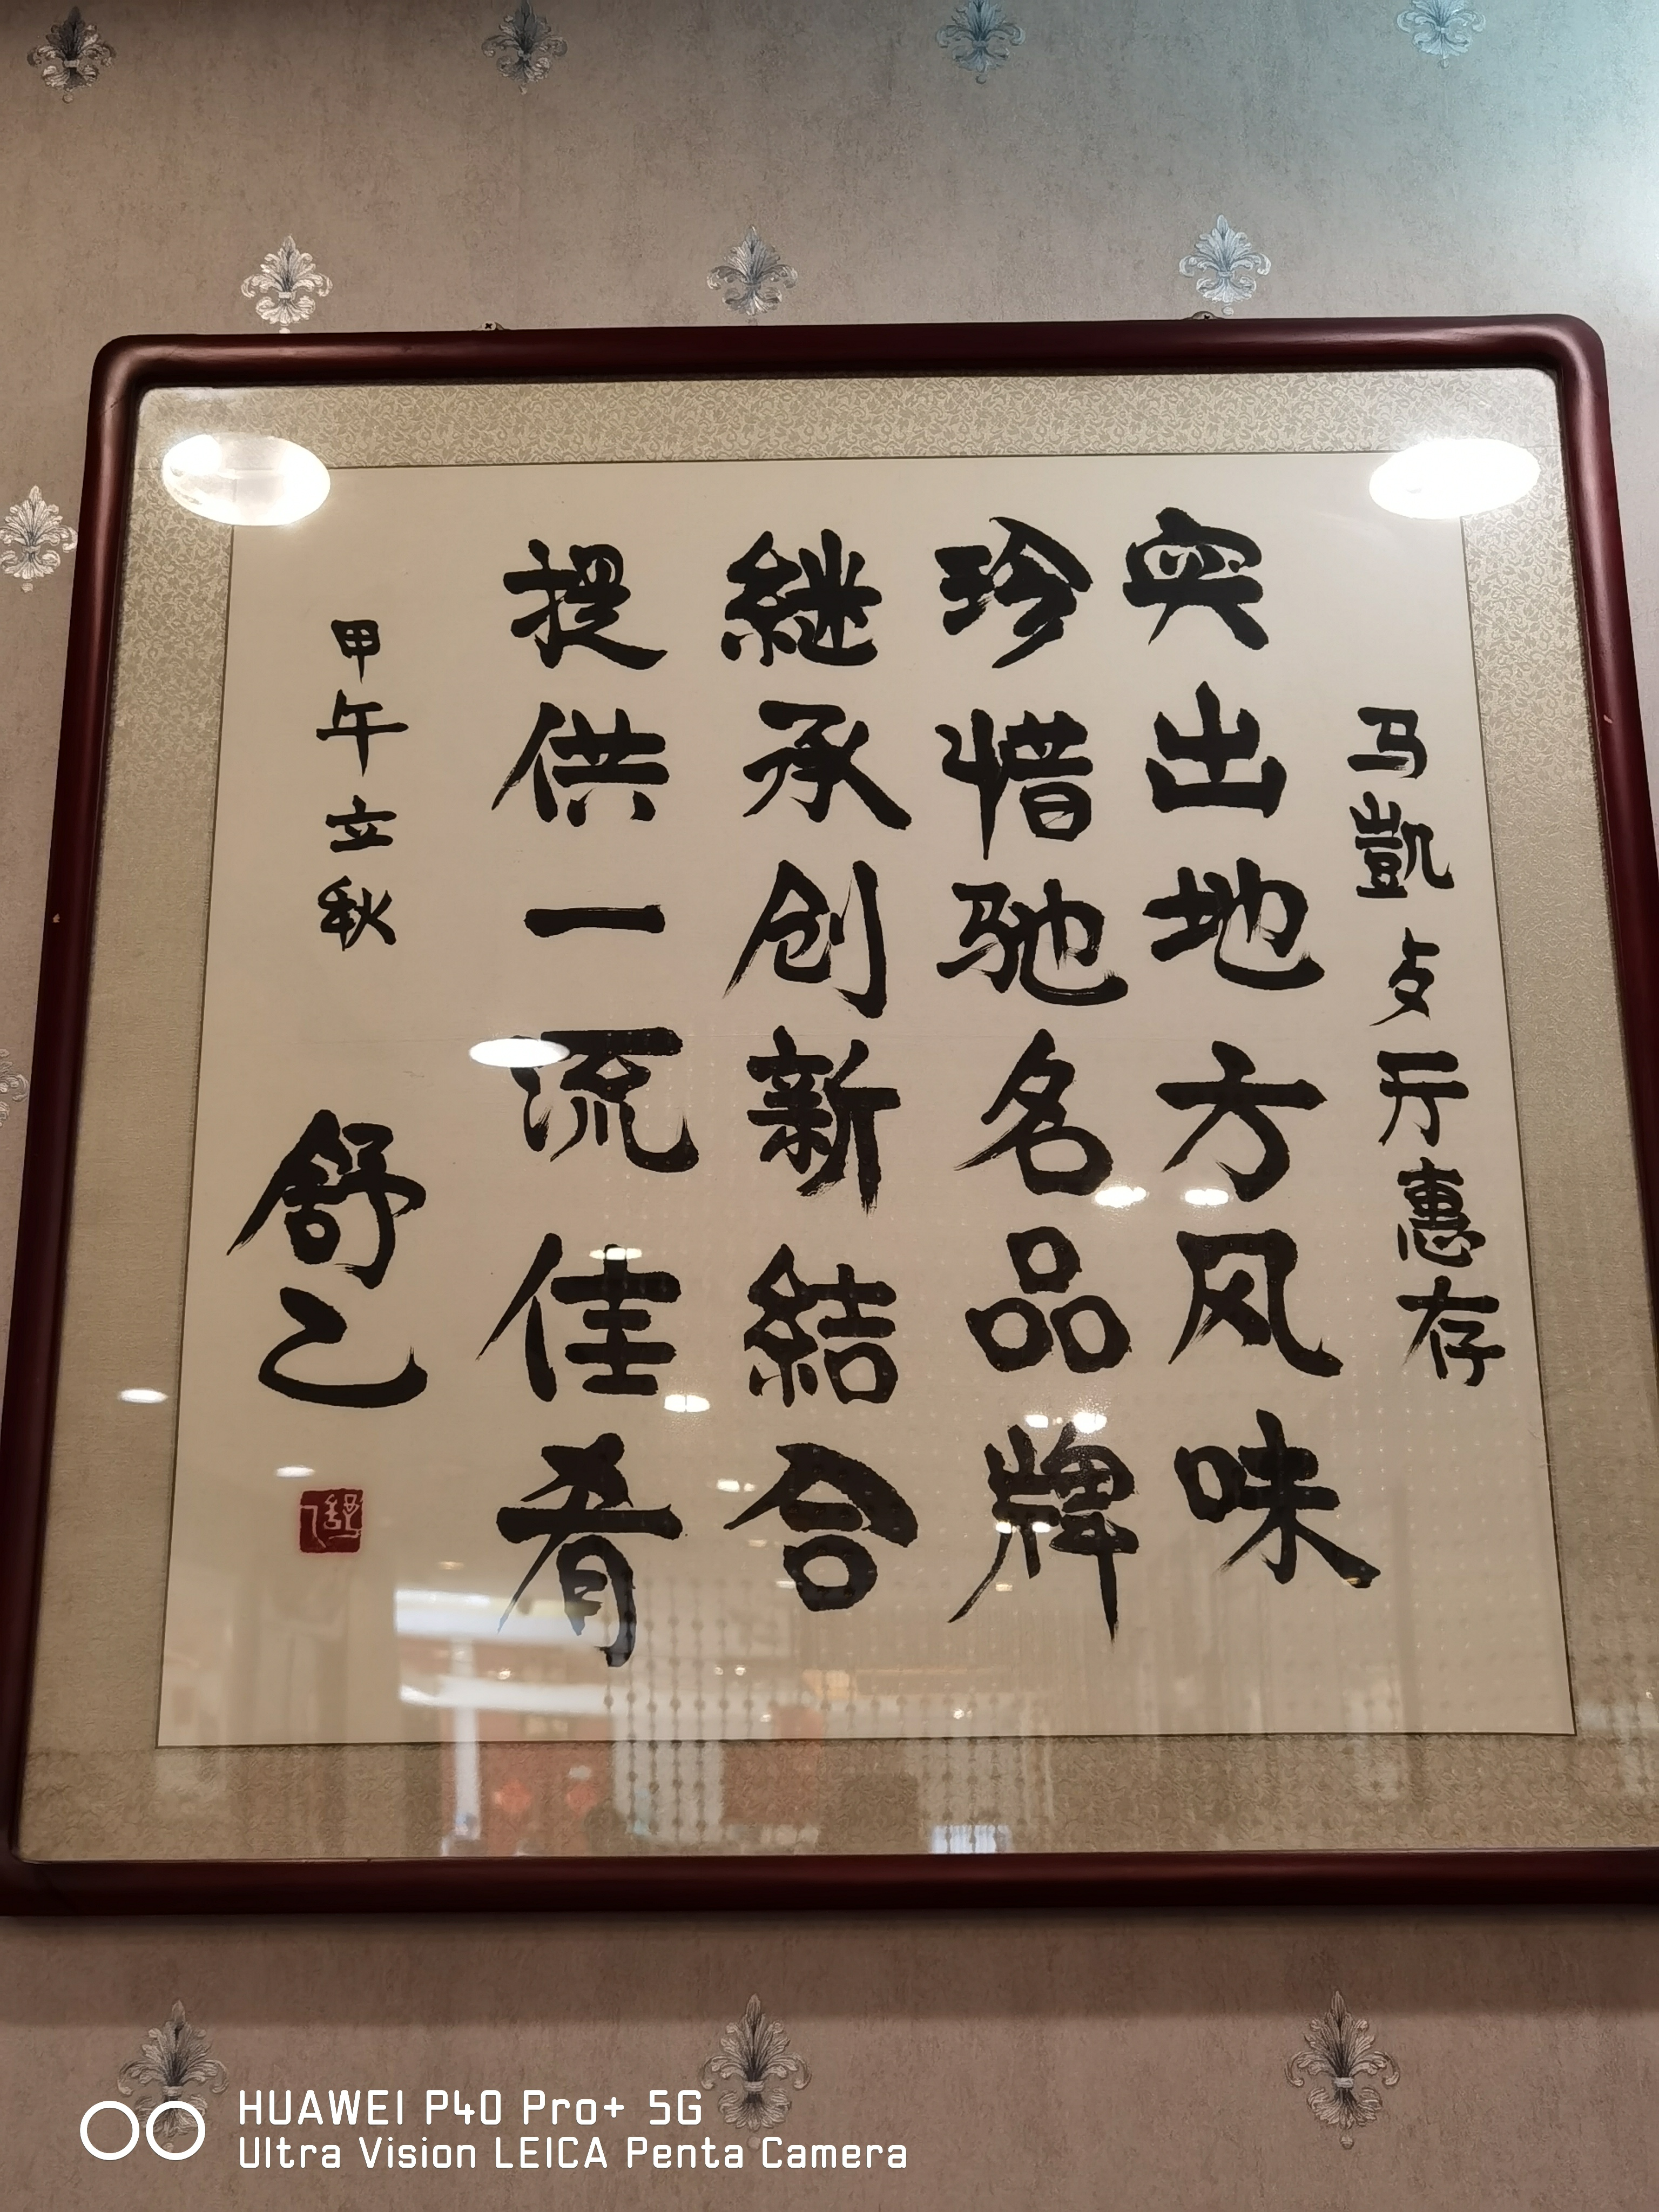 马凱歺厅惠存
突出地方风味
珍惜驰名品牌
継承创新結合
提供一流佳肴
甲午立秋
舒乙
HUAWEI P40 Pro+ 5G
Ultra Vision LEICA Penta Camera